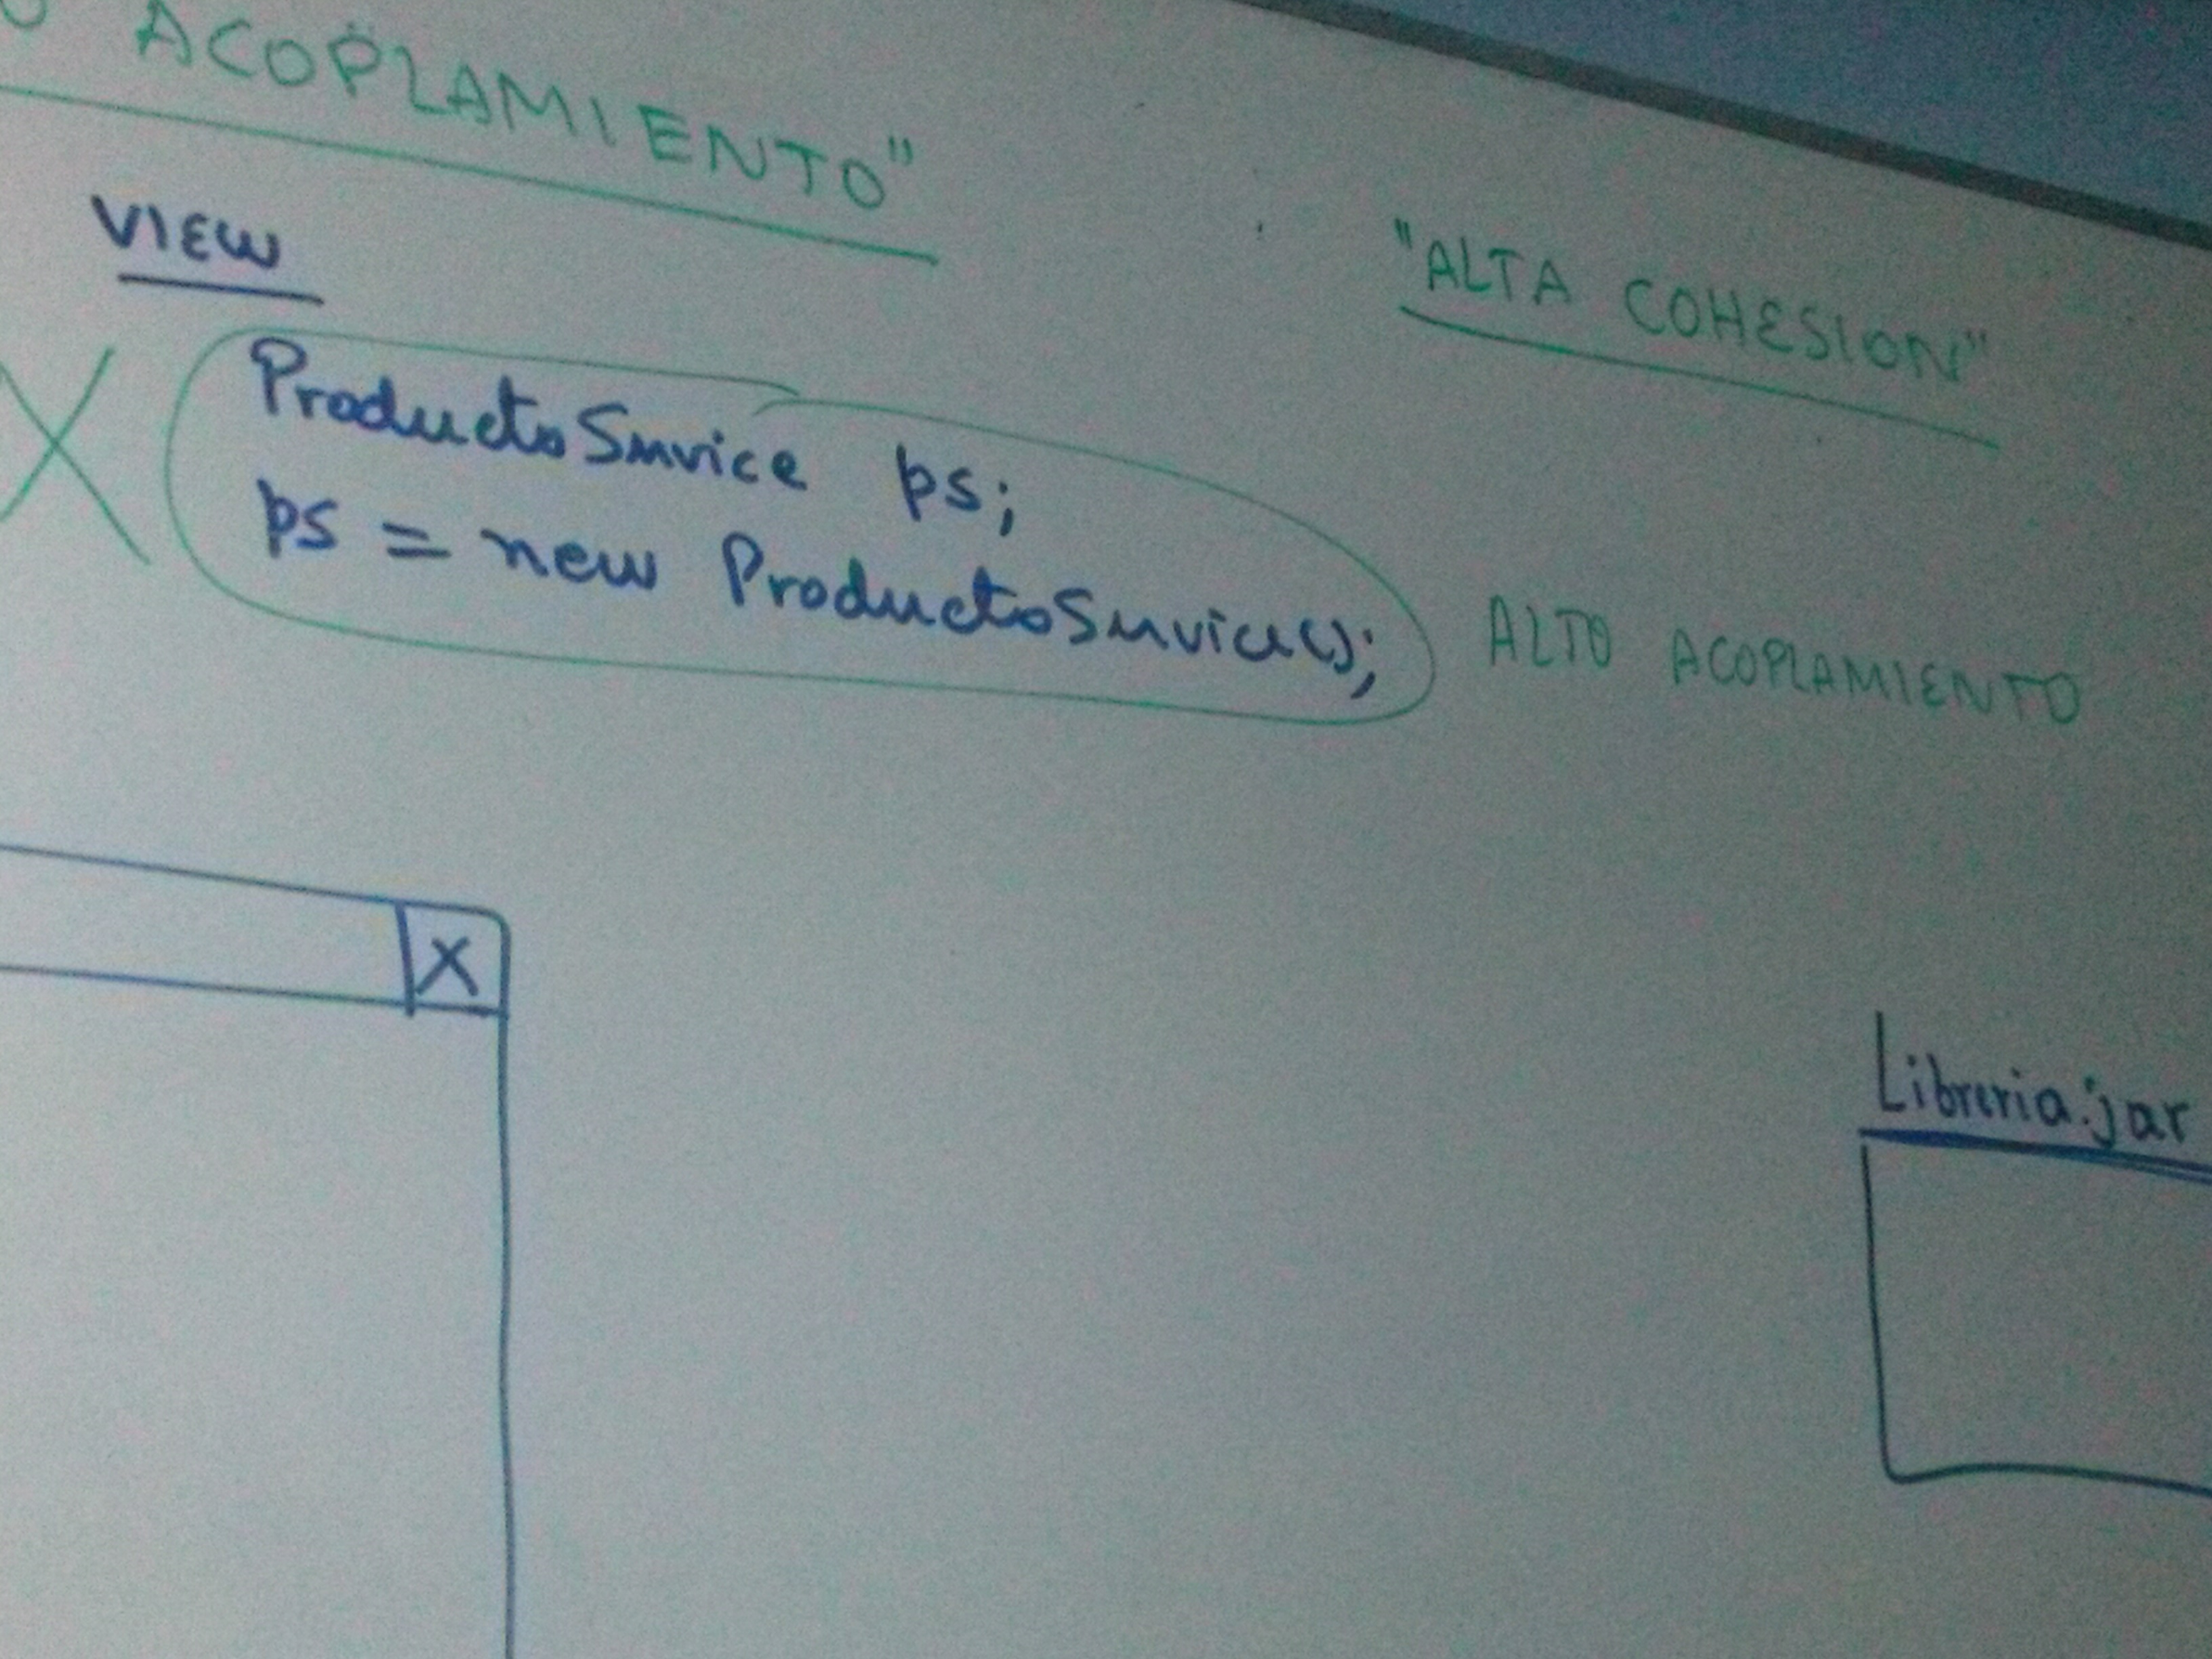 O ACOPLAMIENTO"
"ALTA COHESION"
VIEW
X
ProductoService ps;
ps = new ProductoService();
ALTO ACOPLAMIENTO
X
Libreria.jar